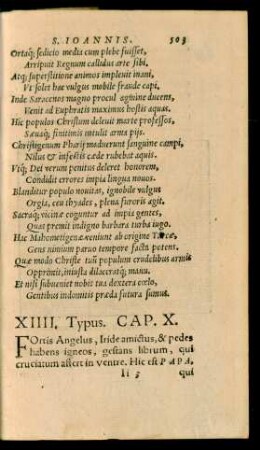 S. IOANNIS. 503
Ortaq́; seditio media cum plebe fuisset,
Arripuit Regnum callidus arte sibi,
Atq; superstitione animos impleuit inani,
Vt solet hac vulgus mobile fraude capi,
Inde Saracenos magno procul agmine ducens,
Venit ad Euphratis maximus hostis aquas.
Hic populos Christum deleuit marte professos,
Sæuaq́; finitimis intulit arma pijs.
Christigenum Pharij maduerunt sanguine campi,
Nilus & infestis cæde rubebat aquis.
Vtq́; Dei verum penitus deleret honorem,
Condidit errores impia lingua nouos.
Blanditur populo nouitas, ignobile vulgus
Orgia, ceu thyades, plena furoris agit.
Sacraq́; vicinæ coguntur ad impia gentes,
Quas premit indigno barbara turba iugo.
Hac Mahometigenæ veniunt ab origine Turcæ,
Gens nimium paruo tempore facta potens.
Quæ modo Christe tuũ populum crudelibus armis
Opprimit, iniusta dilaceratq́; manu.
Et nisi subueniet nobis tua dextera cœlo,
Gentibus indomitis præda futura sumus.
XIIII. Typus. CAP. X.
FOrtis Angelus, Iride amictus, & pedes
habens igneos, gestans librum, qui
cruciatum affert in ventre. Hic est PAPA,
Ii 3 qui